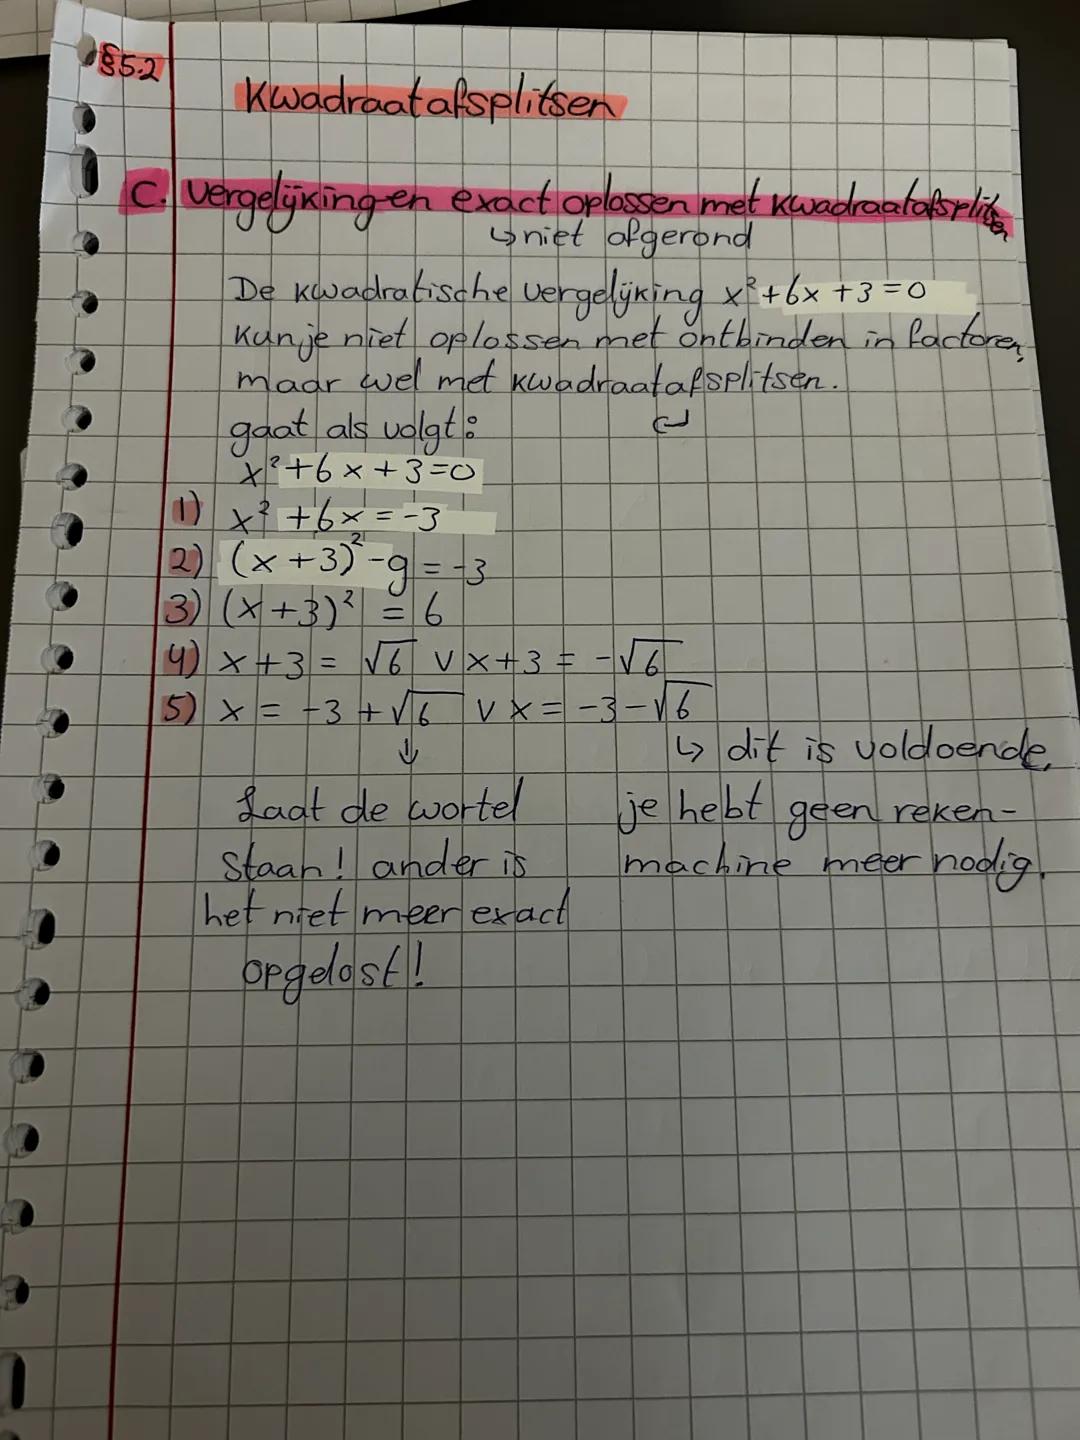 §5.2
Kwadraatafsplitsen
C. vergelijking en exact oplossen met kwadraatafsplitsen
↳ niet afgerond
De kwadratische vergelijking x²+6x+3=0
kun je niet oplossen met ontbinden in factoren,
maar wel met kwadraatafsplitsen.
gaat als volgt:
x²+6x+3=0
1) x²+6x=-3
2) (x+3)²-9=-3
3) (x+3)² = 6
4) x+3 = √6 V x+3 = -√6
5) x = -3+√6 V x = -3-√6
↓
Laat de wortel
staan! ander is
het niet meer exact
opgelost!
↳ dit is voldoende,
je hebt geen reken-
machine meer nodig.